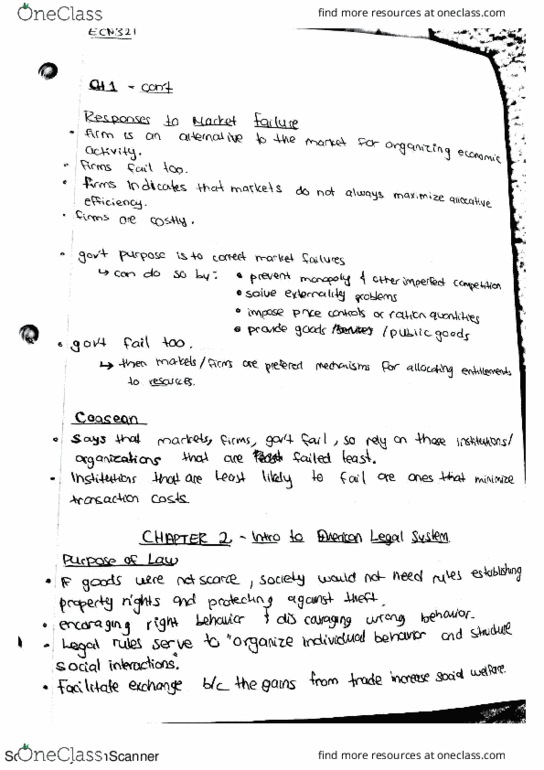 OneClass
find more resources at oneclass.com
ECN321
CH 1 - con't
Responses to Market Failure
• firm is an alternative to the market for organizing economic
activity.
• firms fail too.
• firms indicates that markets do not always maximize allocative
efficiency.
• firms are costly.
• gov't purpose is to correct market failures
↳ can do so by: • prevent monopoly & other imperfect competition
• solve externality problems
• impose price controls or ration quantities
• provide goods /services /public goods
• gov't fail too.
↳ then markets/firms are prefered mechanisms for allocating entitlements
to resources.
Coasean
• says that markets, firms, gov't fail, so rely on those institutions/
organizations that are failed least.
• Institutions that are least likely to fail are ones that minimize
transaction costs
CHAPTER 2 - Intro to American Legal System
Purpose of Law
• IF goods were not scarce, society would not need rules establishing
property rights and protecting against theft.
• encoraging right behavior & discouraging wrong behavior.
• Legal rules serve to "organize individual behavior and structure
social interactions."
• Facilitate exchange b/c the gains from trade increase social welfare.
OneClass
Scanner
find more resources at oneclass.com